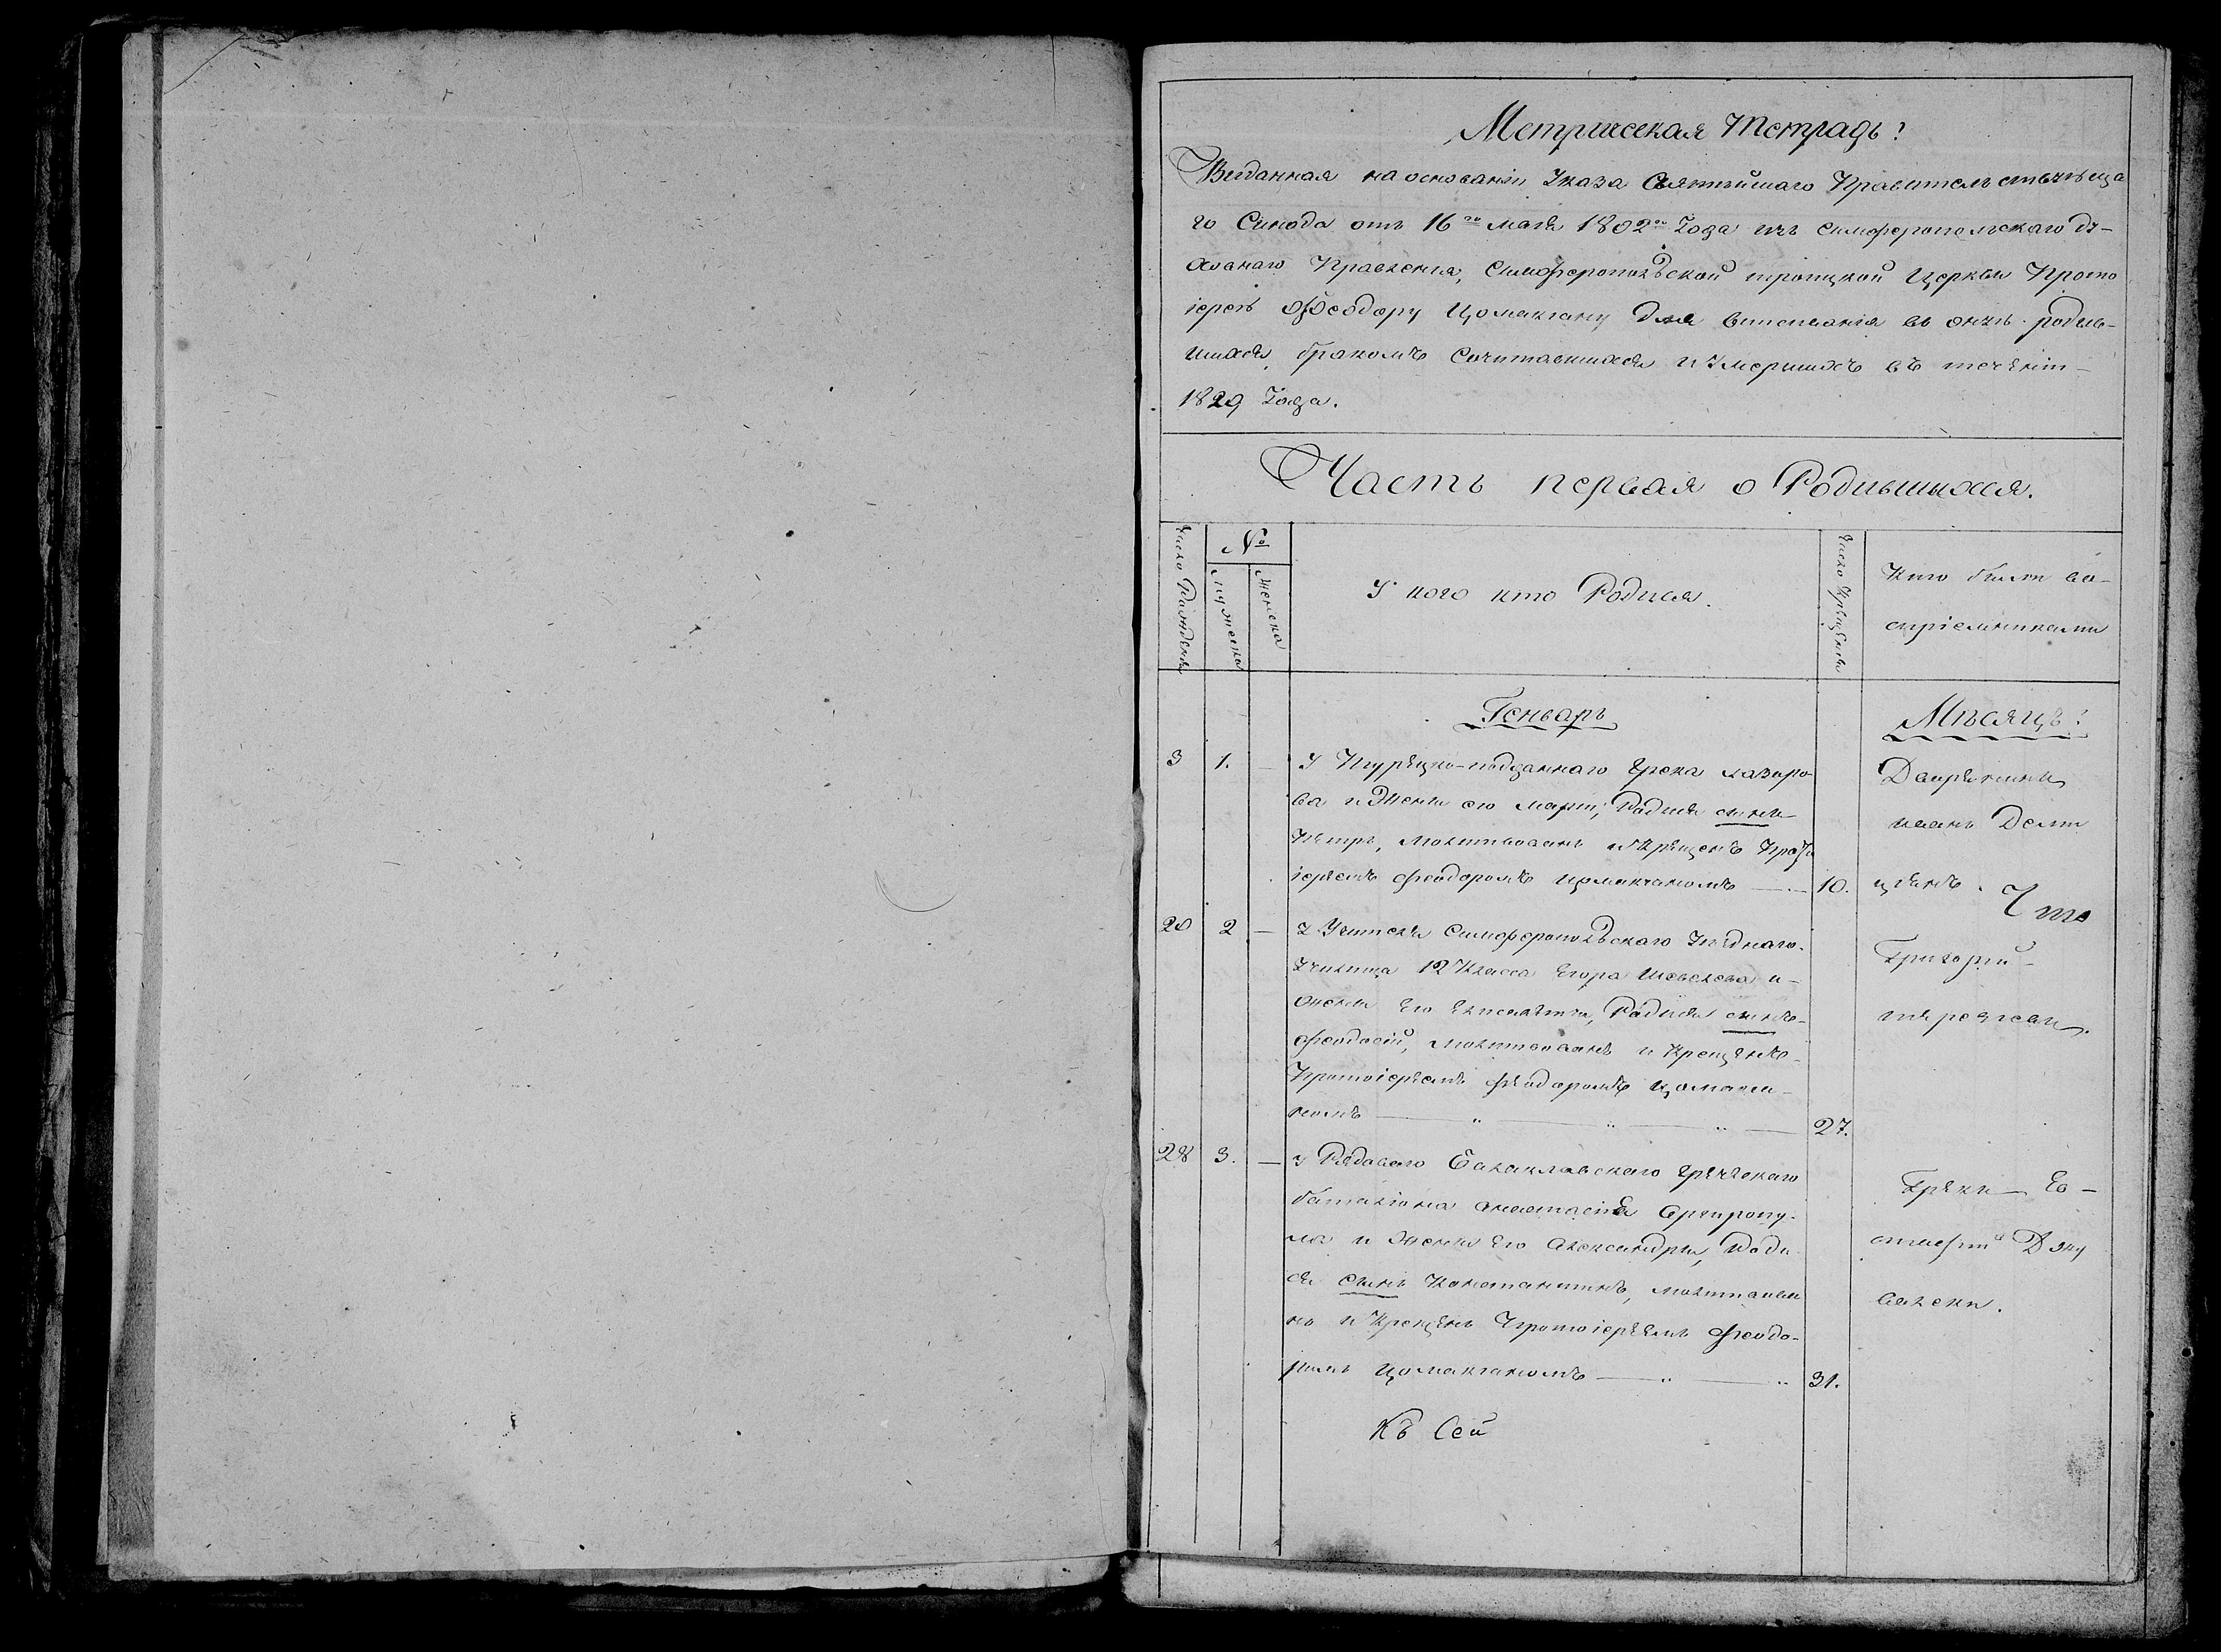 Метрическая Тетрадь:
Выданная на основаніи Указа Святѣйшаго Правительствующа
го Синода отъ 16го маія 1802го Года изъ Симферопольскаго Ду-
ховнаго Правленія, Симферопольской троицкой Церкви Прото
іерею Феодору Цомакіону для вписыванія въ оную родив-
шихся, бракомъ Сочитавшихся и Умершихъ въ теченіи
1829 Года.
Часть первая о Родившихся.
Число Рожденія
№
Мужеска
Женска
У кого кто Родился.
Число Крещенія
Кто были во-
спріемниками
Генварь
Мѣсяцъ:
3 1. — У Турецко-подданнаго Грека лазаро-
ва и жены его Маріи; Родился сынъ
Петръ, Молитвованъ и Крещенъ Прото
іереемъ Феодоромъ Цомакіономъ — 10.
Дворянинъ
иванъ
20 2 — У Учителя Симферопольскаго Уѣзднаго
Училища 12 Класса Егора Шевелева и
жены Его Елисаветы, Родился сынъ
Феодосій, Молитвованъ и Крещенъ
Протоіереемъ Феодоромъ Цомакіо-
номъ — 27.
Григорій
28 3. — У Рядоваго Балаклавскаго Греческаго
баталіона анастасія Аргиропу-
ла и жены Его Александры, Роди
ся сынъ Константинъ, молитвова
нъ и Крещенъ Протоіереемъ Феодо-
ромъ Цомакіономъ — 31.
Грекъ Ев-
Къ Сей